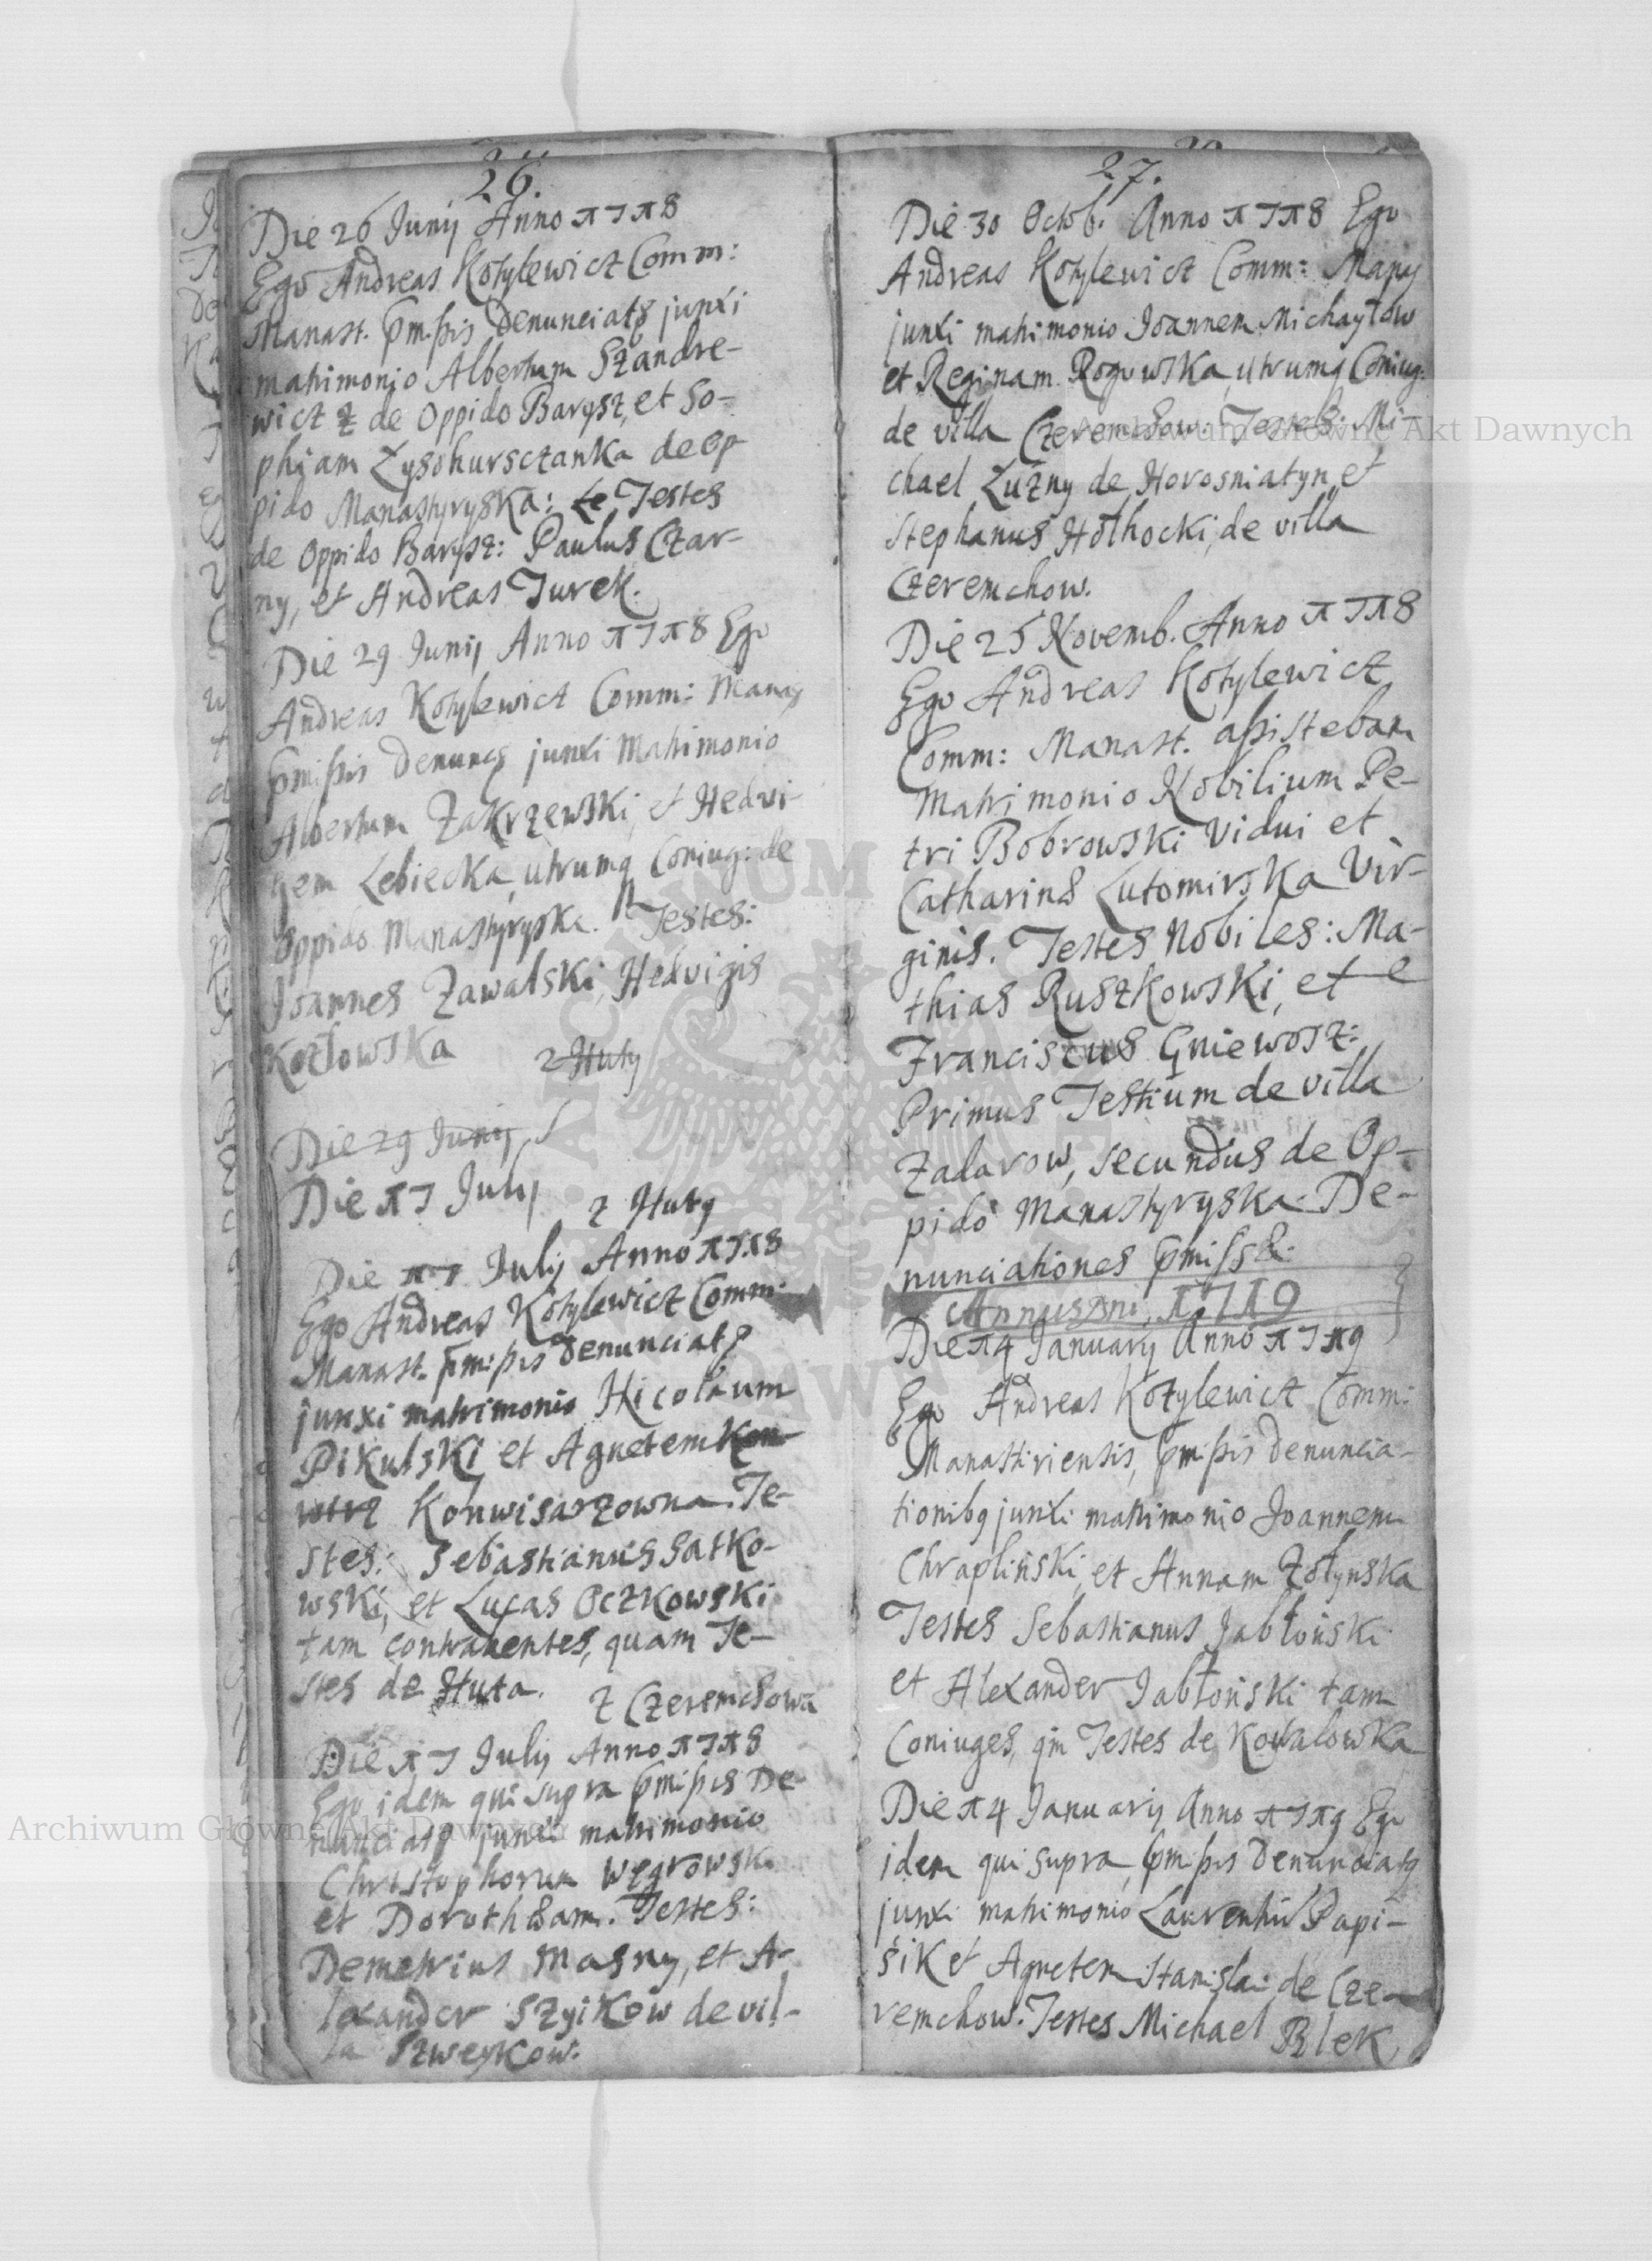 26.
Die 26 Junij Anno 1718
Ego Andreas Kotylewicz Comm:
Manast. pmissis Denunciatq junxi
matrimonio Albertum Szandre-
wicz z de Oppido Barysz, et So-
phiam Łysohursczanka de Op
pido Manastyryska: Le Testes
de Oppido Barysz: Paulus Czar-
ny, et Andreas Turek.
Die 29 Junij Anno 1718 Ego
Andreas Kotylewicz Comm: Manas
pmissis Denuncq junxi Matrimonio
Albertum Zakrzewski, et Hedvi-
gem Lebiecka utrumq Coniug: de
Oppido Manastyryska. Testes:
Joannes Zawalski, Hedvigis
Kozłowska
z Huty
Die 29 Junij
Die 17 Julij
z Huty
Die 17 Julij Anno 1718
Ego Andreas Kotylewicz Comm:
Manast. pmissis Denunciatq
junxi matrimonio Nicolaum
Pikulski et Agnetem Kon-
wirz Konwisarzowna. Te-
stes: Sebastianus Satko-
wski, et Lucas Oczkowski
tam contrahentes, quam Te-
stes de Huta.
z Czeremchowa
Die 17 Julij Anno 1718
Ego idem qui supra pmissis De-
nunciatq junxi matrimonio
Christophorum Węgrowski
et Dorotheam. Testes:
Demetrius Masny, et A-
lexander Szyikow de vil-
la Szweykow.
27.
Die 30 Octob. Anno 1718 Ego
Andreas Kotylewicz Comm: Manas
junxi matrimonio Joannem Michayłow
et Reginam Rogowska, utrumq Coniug:
de villa Czeremchow. Testes: Mi-
chael Łuzny de Horosniatyn et
Stephanus Hołhocki, de villa
Czeremchow.
Die 25 Novemb. Anno 1718
Ego Andreas Kotylewicz
Comm: Manast. assistebam
Matrimonio Nobilium Pe-
tri Bobrowski Vidui et
Catharinæ Lutomirska Vir-
ginis. Testes Nobiles: Ma-
thias Ruszkowski, et e
Franciscus Gniewosz:
Primus Testium de villa
Zadarow, secundus de Op-
pido Manastyryska. De-
nunciationes pmissæ.
Annus Dni, 1719
Die 14 Januarij Anno 1719
Ego Andreas Kotylewicz Comm:
Manastiriensis, pmissis denuncia-
tionibq junxi matrimonio Joannem
Chrapliński, et Annam Zołynska
Testes Sebastianus Jabłoński
et Alexander Jabłoński tam
Coniuges, qm Testes de Kowalowka
Die 14 Januarij Anno 1719 Ego
idem qui supra, pmissis Denunciatq
junxi matrimonio Laurentiū Papi-
śik et Agnetem Stanisla: de Cze-
remchow. Testes Michael Blek,
Archiwum Główne Akt Dawnych
Archiwum Główne Akt Dawnych